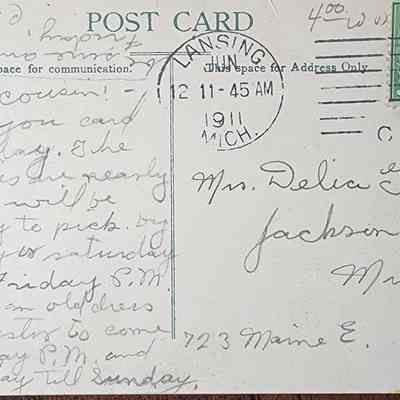 POST CARD
4.00
Space for communication.
This space for Address Only
LANSING
JUN
12 11-45 AM
1911
MICH.
cousin! -
you card
day. The
es are nearly
will be
to pick. by
y or saturday
Friday P.M.
an old dress
to come
ay P.M. and
ay till Sunday.
Mrs. Delia
Jackson
Mi
723 Maine E.